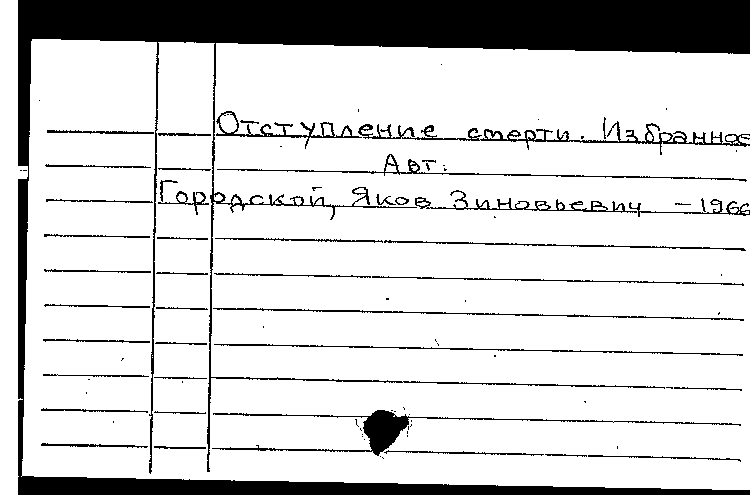 Отступление смерти. Избранное
Авт.:
Городской, Яков Зиновьевич – 1966